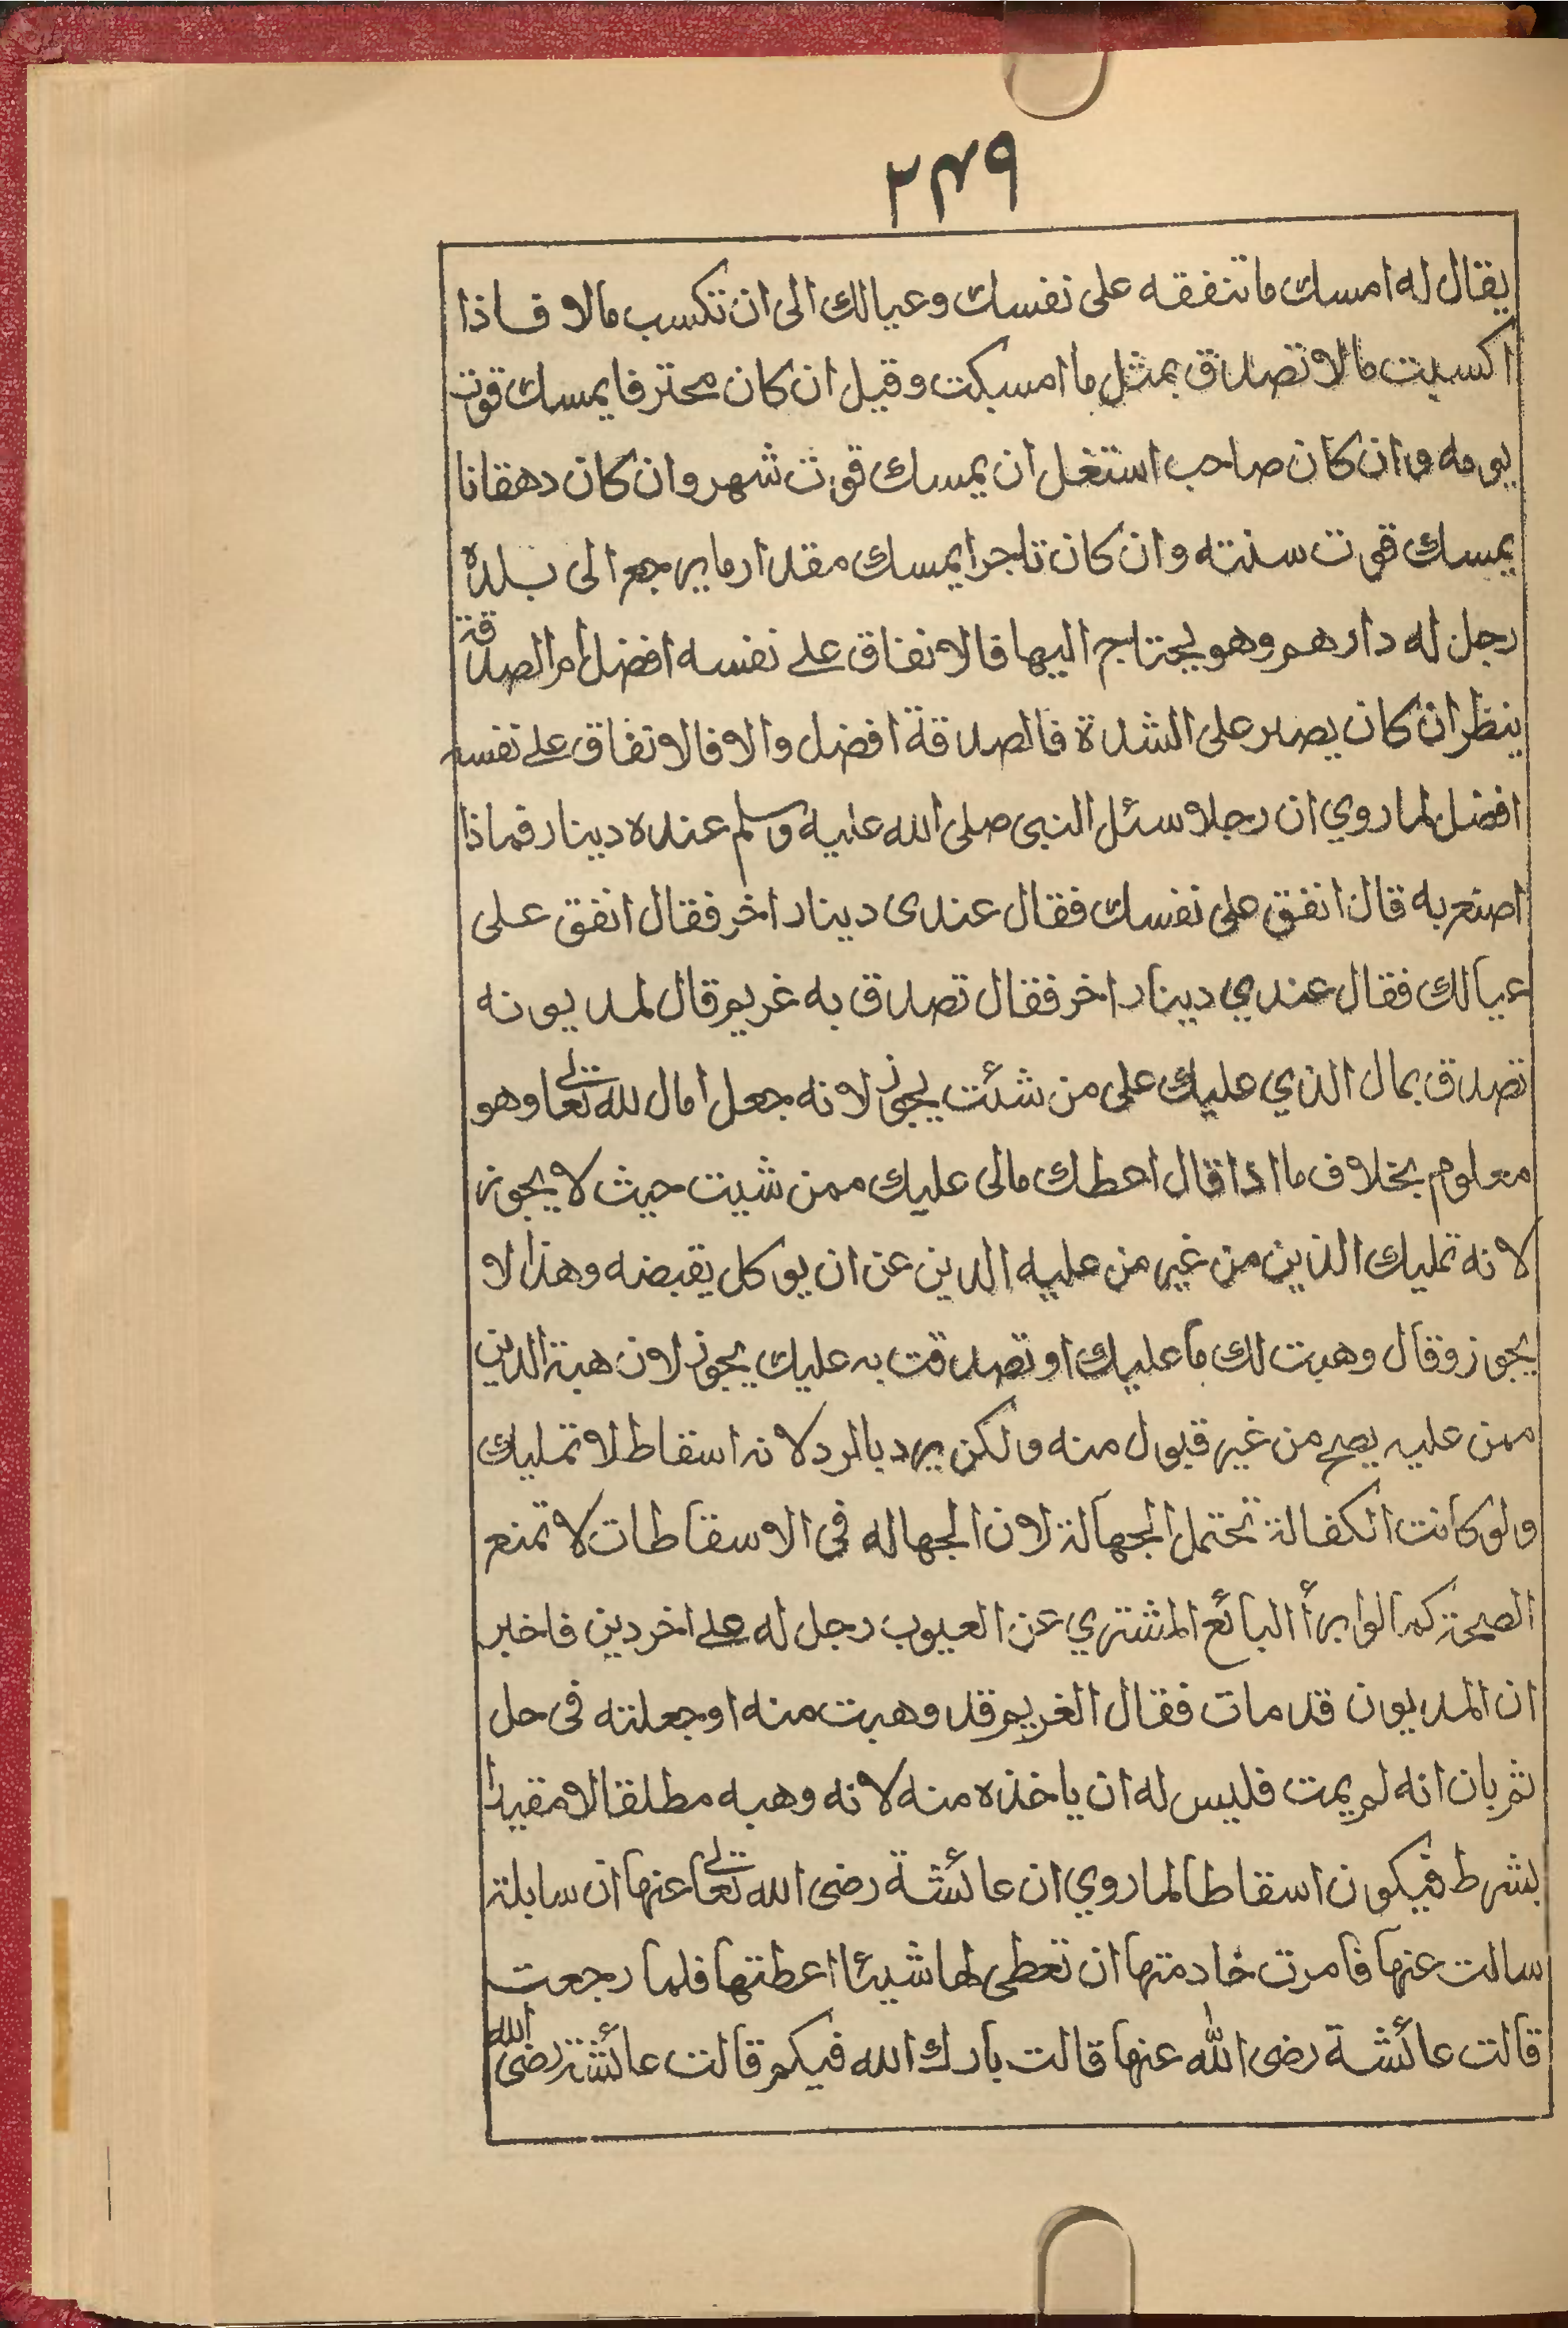 ٢٤٩
يقال له امسك ما تنفقه على نفسك وعيالك الى ان تكسب مالا فاذا
اكسبت مالا تصدق بمثل ما امسكت وقيل ان كان محترفا يمسك قوت
يومه وان كان صاحب استغل ان يمسك قوت شهر وان كان دهقانا
يمسك قوت سنته وان كان تاجرا يمسك مقدار ما يرجع الى بلده
رجل له دارهم وهو يحتاج اليها فالانفاق على نفسه افضل ام الصدقة
ينظر ان كان يصبر على الشدة فالصدقة افضل والا فالانفاق على نفسه
افضل لما روي ان رجلا سئل النبى صلى الله عليه وسلم عنده دينار فماذا
اصنع به قال انفق على نفسك فقال عندى دينار اخر فقال انفق على
عيالك فقال عندي دينار اخر فقال تصدق به غريم قال لمديونه
تصدق بمال الذي عليك على من شئت يجوز لانه جعل امال لله تعالى وهو
معلوم بخلاف ما اذا قال احطك مالى عليك ممن شيت حيث لا يجوز
لانه تمليك الذين من غير من عليه الدين عن ان يوكل يقبضه وهذا لا
يجوز وقال وهبت لك ما عليك او تصدقت به عليك يجوز لان هبة الدين
ممن عليه يصح من غير قبول منه ولكن يرد بالرد لانه اسقاط لا تمليك
ولو كانت الكفالة تحتمل الجهالة لان الجهاله فى الاسقاطات لا تمنع
الصحة كما لو ابرأ البائع المشتري عن العيوب رجل له على اخر دين فاخبر
ان المديون قد مات فقال الغريم قد وهبت منه او جعلته فى حل
ثم بان انه لم يمت فليس له ان ياخذه منه لانه وهبه مطلقا لا مقيدا
بشرط فيكون اسقاطا لما روي ان عائشة رضى الله تعالى عنها ان سايلة
سالت عنها فامرت خادمتها ان تعطى لها شيئا اعطتها فلما رجعت
قالت عائشة رضى الله عنها قالت بارك الله فيكم قالت عائشة رضى الله